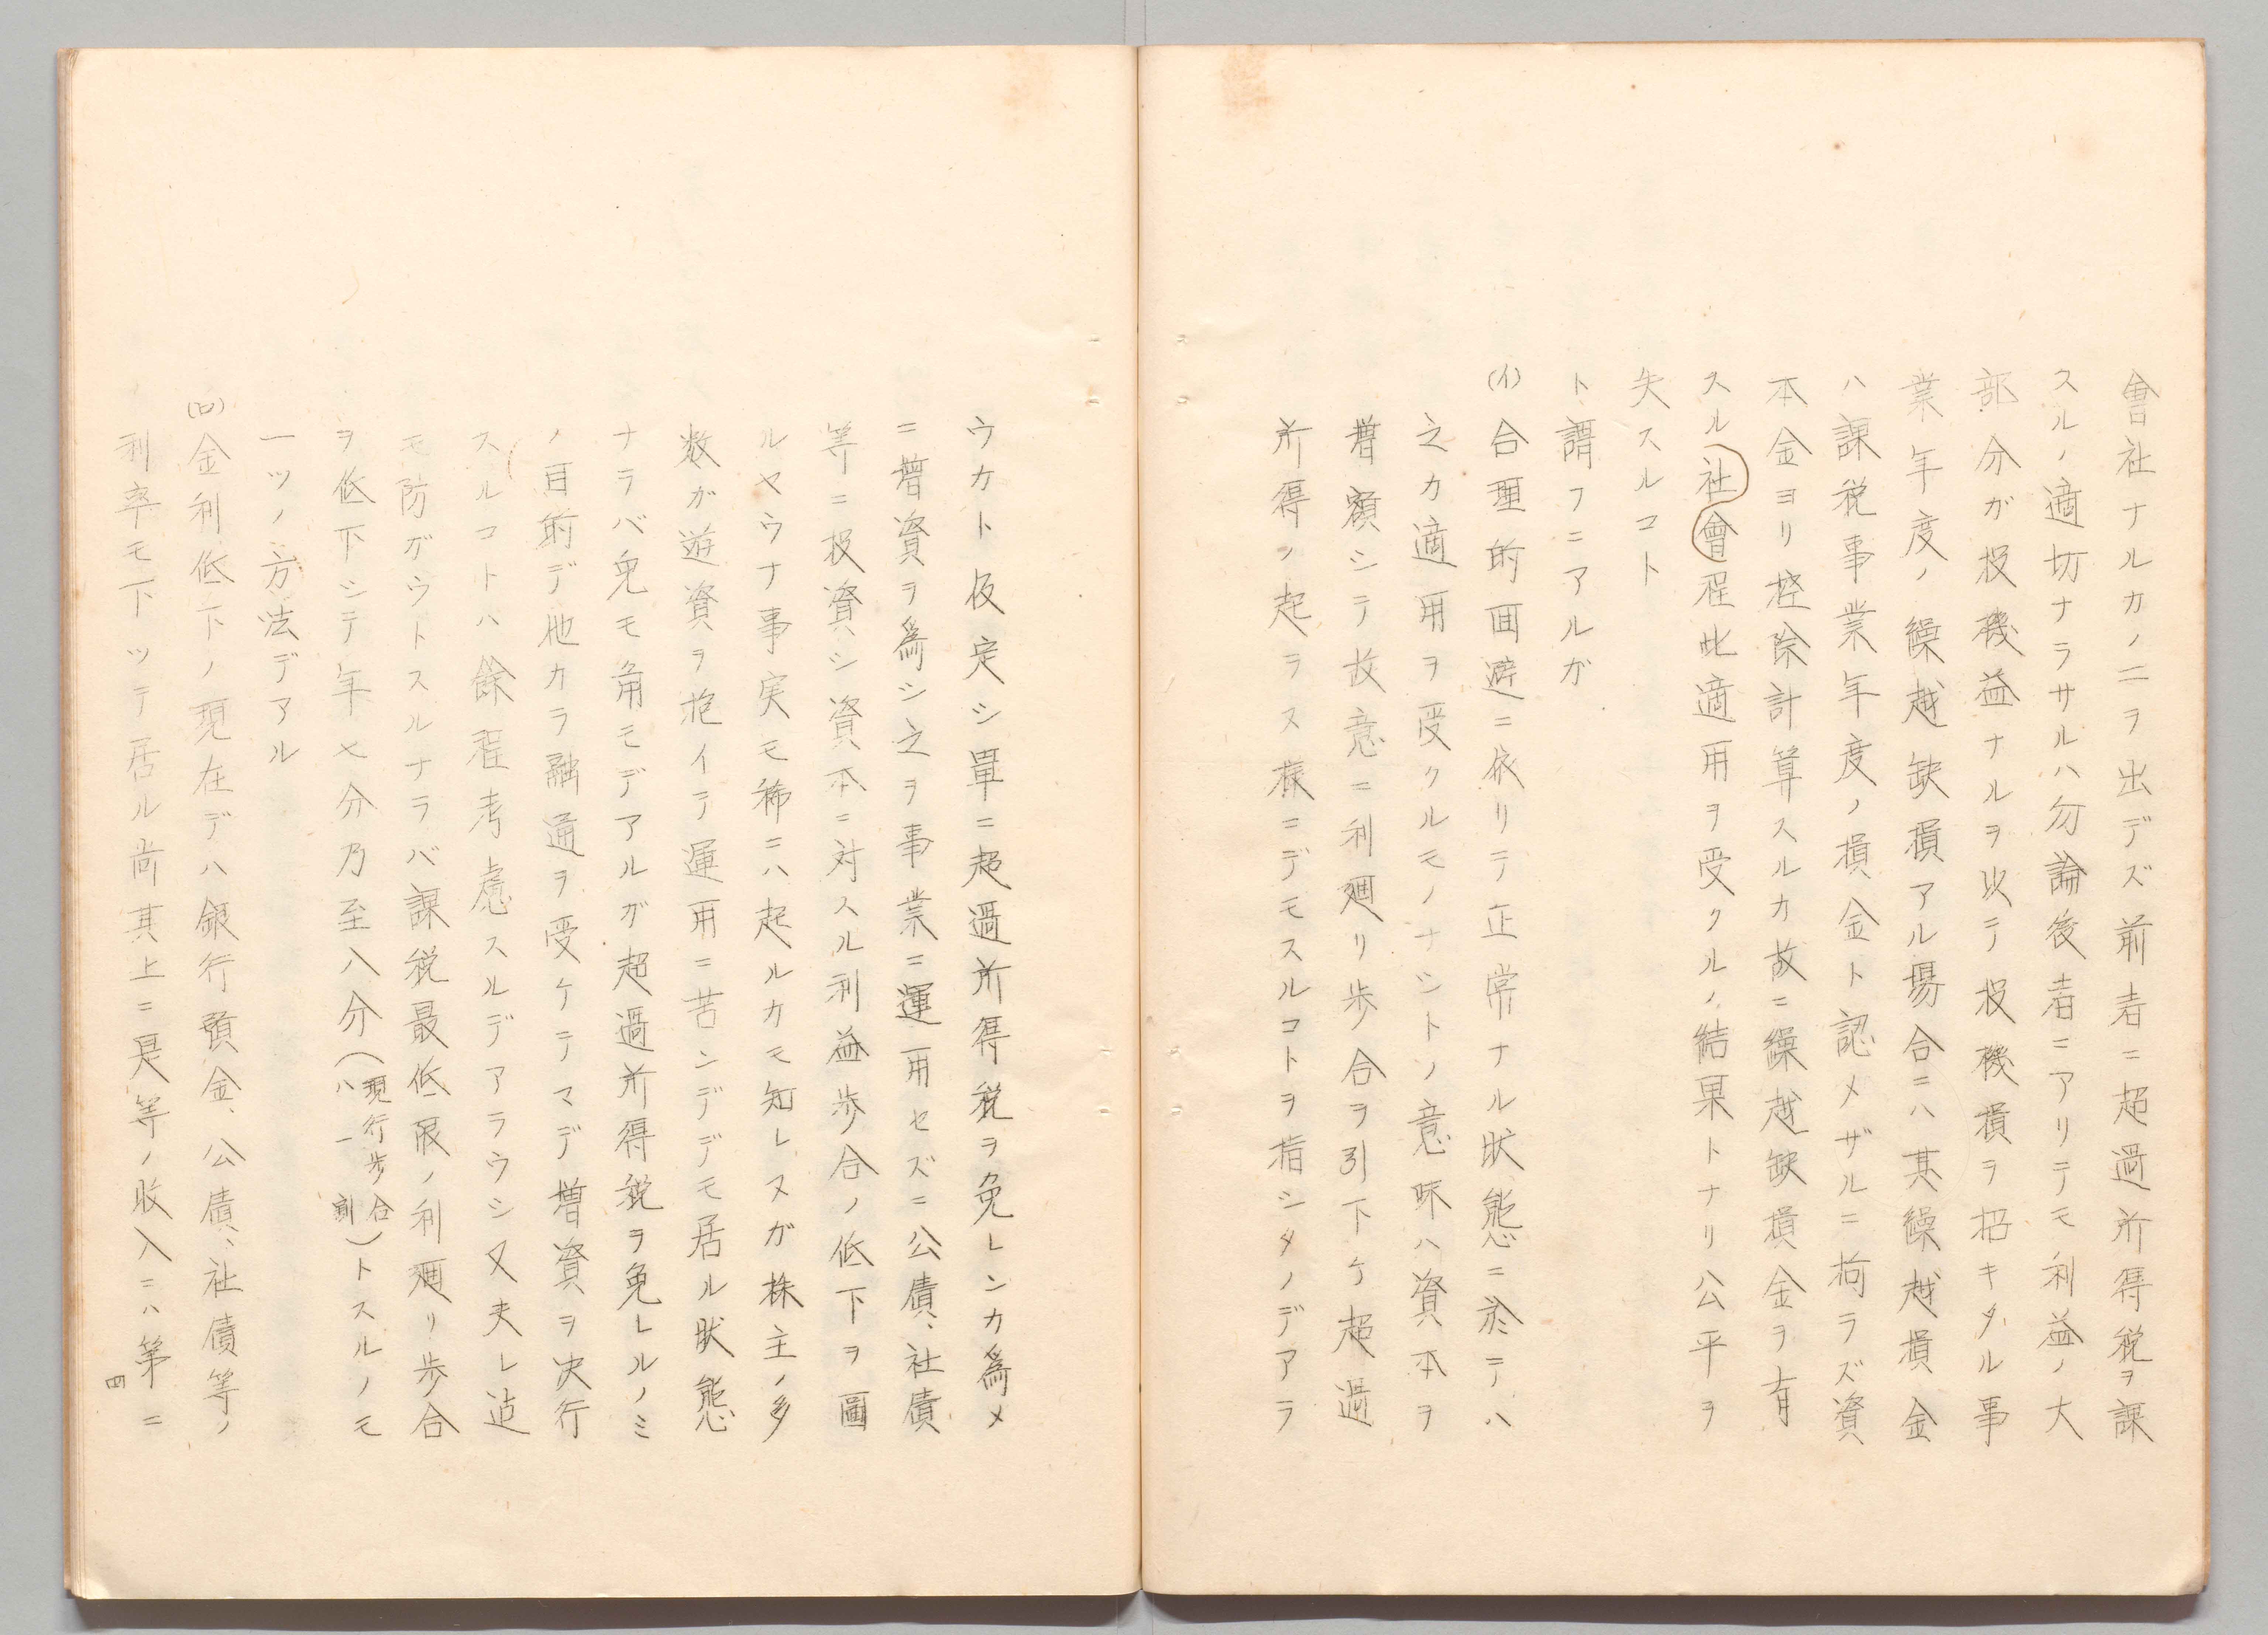 會社ナルカノ二ヲ出デズ前者ニ超過所得税ヲ課
スルノ適切ナラサルハ勿論後者ニアリテモ利益ノ大
部分ガ投機益ナルヲ以テ投機損ヲ招キタル事
業年度ノ繰越缺損アル場合ニハ其繰越損金
ハ課税事業年度ノ損金ト認メザルニ拘ラズ資
本金ヨリ控除計算スルカ故ニ繰越缺損金ヲ有
スル社會程此適用ヲ受クルノ結果トナリ公平ヲ
失スルコト
ト謂フニアルガ
(イ)合理的回避ニ依リテ正常ナル状態ニ於テハ
之カ適用ヲ受クルモノナシトノ意味ハ資本ヲ
増額シテ故意ニ利廻リ歩合ヲ引下ケ超過
所得ノ起ラヌ様ニデモスルコトヲ指シタノデアラ
ウカト仮定シ單ニ超過所得税ヲ免レンカ爲メ
ニ増資ヲ爲シ之ヲ事業ニ運用セズニ公債、社債
等ニ投資シ資本ニ対スル利益歩合ノ低下ヲ圖
ルヤウナ事実モ稀ニハ起ルカモ知レヌガ株主ノ多
数が遊資ヲ抱イテ運用ニ苦ンデデモ居ル状態
ナラバ兔モ角モデアルガ超過所得税ヲ免レルノミ
ノ目的デ他カラ融通ヲ受ケテマデ増資ヲ决行
スルコトハ餘程考慮スルデアラウシ又夫レ迠
モ防ガウトスルナラバ課税最低限ノ利廻リ歩合
ヲ低下シテ年七分乃至八分(現行歩合ハ一割)トスルノモ
一ツノ方法デアル
(ロ)金利低下ノ現在デハ銀行預金、公債、社債等ノ
利率モ下ツテ居ル尚其上ニ是等ノ收入ニハ第二
四